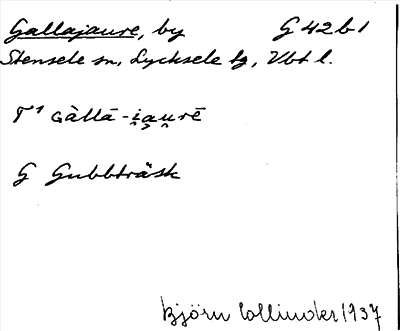 Gallajaure, by G 42 b 1
Stensele sn, Lycksele lg, Vbt l.
T¹ Gàllā-i̯au̯rē
G Gubbträsk
Björn Collinder 1937